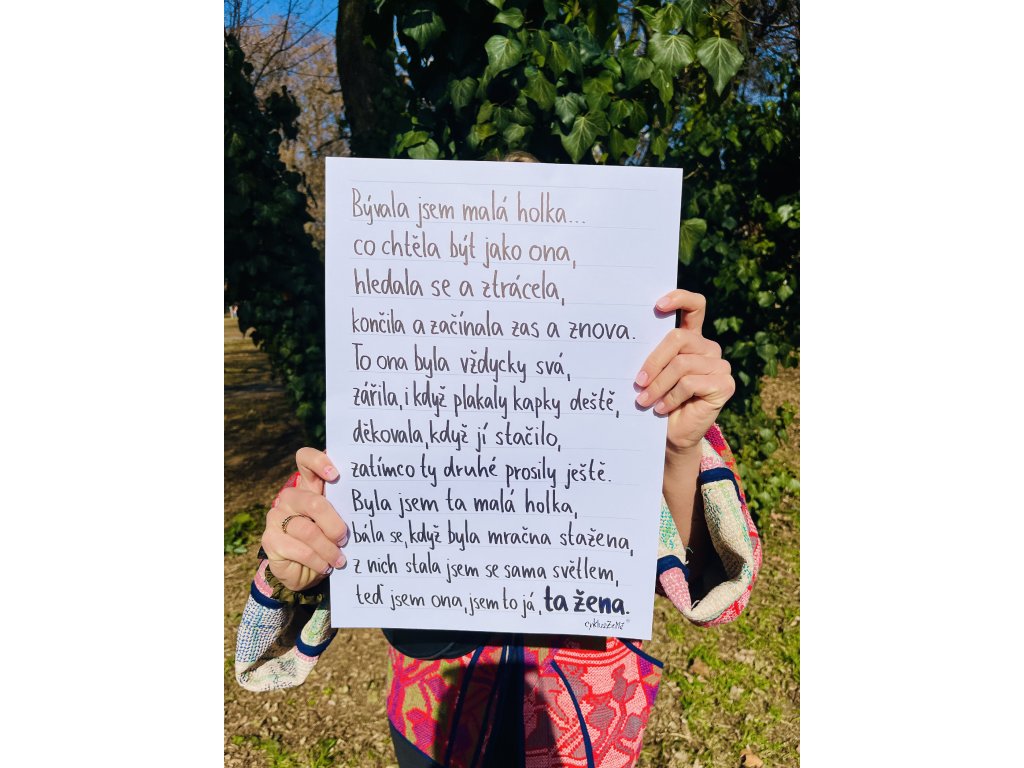 Bývala jsem malá holka...
co chtěla být jako ona,
hledala se a ztrácela,
končila a začínala zas a znova.
To ona byla vždycky svá,
zářila, i když plakaly kapky deště,
děkovala, když jí stačilo,
zatímco ty druhé prosily ještě.
Byla jsem ta malá holka,
bála se, když byla mračna stažena,
z nich stala jsem se sama světlem,
teď jsem ona, jsem to já, ta žena.